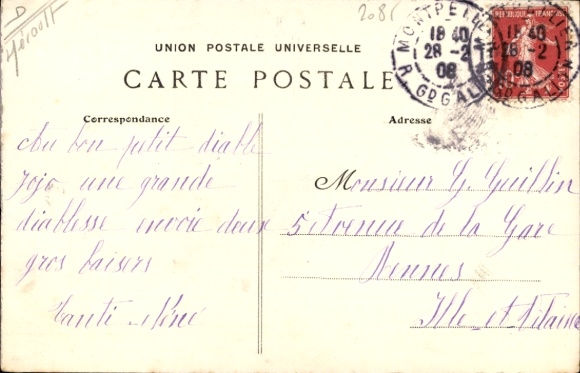 D
Hérault
2085
UNION POSTALE UNIVERSELLE
CARTE POSTALE
MONTPELLIER
18 40
28 -2
08
R. GD GALION
REPUBLIQUE FRANCAISE
Correspondance
Adresse
Au bon petit diable
Jojo une grande
diablesse envoie deux
gros baisers
Tanti
Monsieur G. Guillin
5 Avenue de la Gare
Rennes
Ille et Vilaine